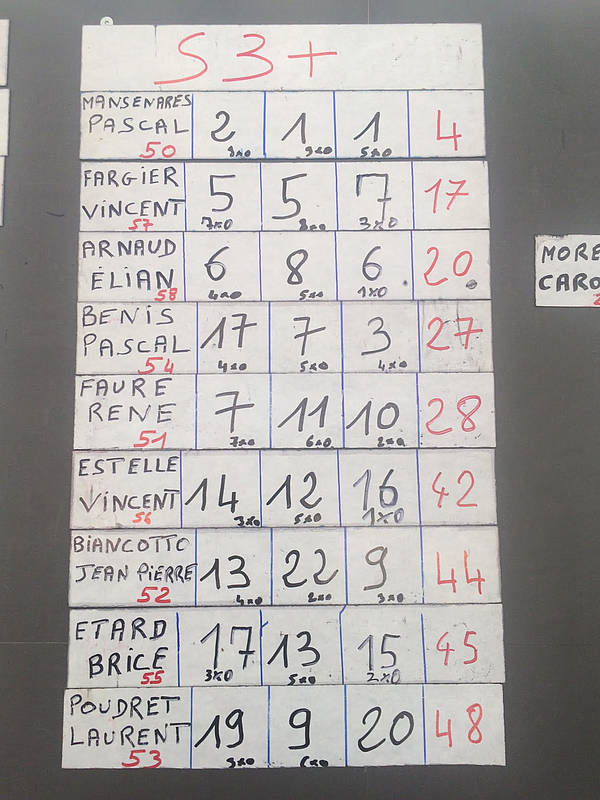 S3+
MANSENARES
PASCAL 2 1 1 4
50 5x0
FARGIER
VINCENT 5 5 7 17
57 7x0 8x0 3x0
ARNAUD
ELIAN 6 8 6. 20
58 4x0 5x0 1x0
BENIS
PASCAL 17 7 3 27
54 4x0 5x0 4x0
FAURE
RENE 7 11 10 28
51 7x0 6x0 2x0
ESTELLE
VINCENT 14 12 16 42
56 3x0 5x0 1x0
BIANCOTTO
JEAN PIERRE 13 22 9 44
52 4x0 2x0 3x0
ETARD
BRICE 17 13 15 45
55 3x0 5x0 2x0
POUDRET
LAURENT 19 9 20 48
53 3x0
MORE
CARO